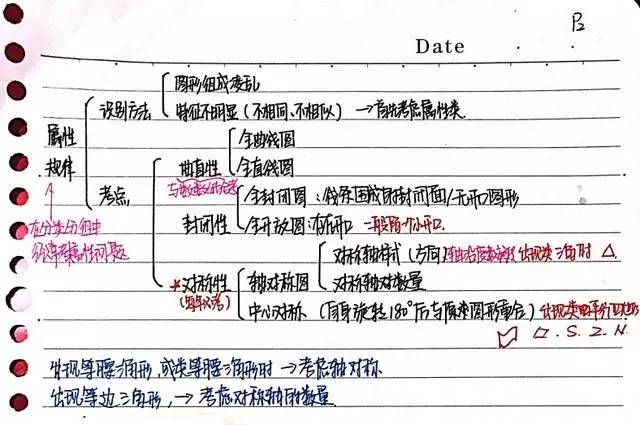 Date
图形组成凌乱
识别方法
特征不明显（不相同、不相似）→首先考虑属性类
属性
规律
全曲线图
曲直性
全直线图
考点
全封闭图：线条围成的封闭面/无开口图形
封闭性
全开放图：有开口 一般留一个小开口
在分类分组中
对称轴样式（方向） 出现类三角时 △
★对称性
轴对称图
对称轴对数量
中心对称（自身旋转180°后与原来图形重合）出现类平行四边形
▱. S. Z. N
出现等腰三角形，或类等腰三角形时→考虑轴对称
出现等边三角形，→考虑对称轴的数量